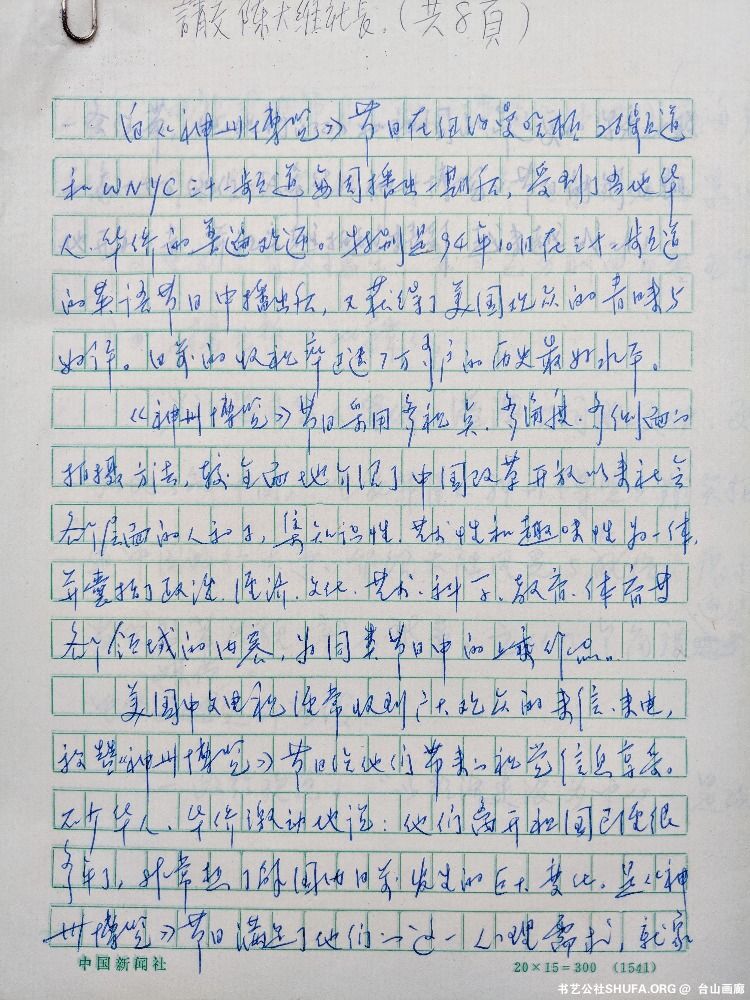 請交陈大维社长.(共8頁)
自《神州博览》节目在纽约曼哈顿26频道
和WNYC三十一频道每周播出一期后,受到了当地华
人、华侨的普遍欢迎。特别是94年10月在三十一频道
的英语节目中播出后,又获得了美国观众的青睐与
好评。目前的收视率已达7万户的历史最好水平。
《神州博览》节目采用多视点、多角度、多侧面的
拍摄方法,较全面地介绍了中国改革开放以来社会
各个层面的人和事,集知识性、艺术性和趣味性为一体,
并囊括了政治、经济、文化、艺术、科学、教育、体育等
各个领域的内容,为同类节目中的上乘作品。
美国中文电视经常收到广大观众的来信、来电,
称赞《神州博览》节目给他们带来的视觉信息享受。
不少华人、华侨激动地说:他们离开祖国已经很
多年了,非常想了解国内目前发生的巨大变化。是《神
州博览》节目满足了他们的这一心理需求,就象
中国新闻社
20×15=300 (1541)
书艺公社SHUFA.ORG @ 台山画廊